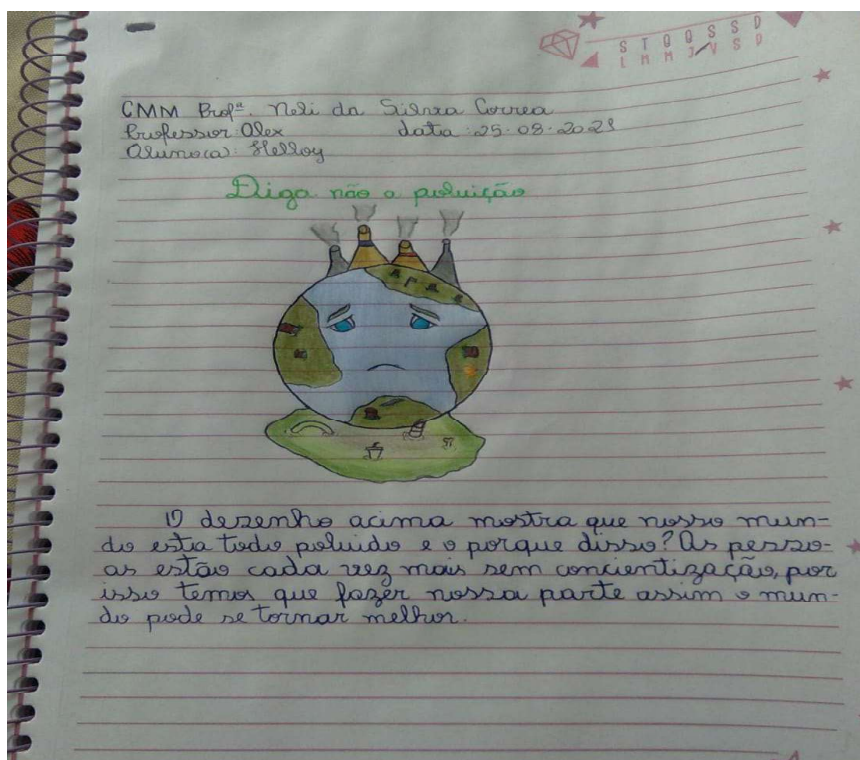 S T Q Q S S D
L M M J V S D
CMM Profª. Neli da Silva Correa
Professor: Alex data: 25.08.2021
Aluno(a): Helloy
Diga não a poluição
O dezenho acima mostra que nosso mun-
do esta todo poluido e o porque disso? As pesso-
as estão cada vez mais sem concientização, por
isso temos que fazer nossa parte assim o mun-
do pode se tornar melhor.